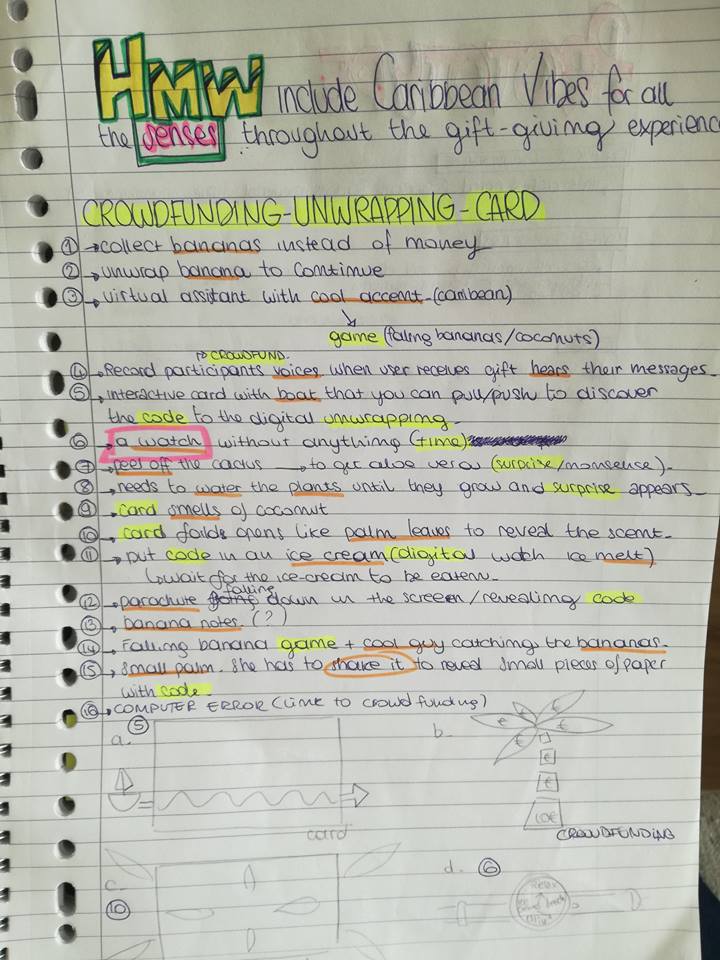 HMW include Caribbean Vibes for all
the senses throughout the gift-giving experience
CROWDFUNDING-UNWRAPPING-CARD
① → collect bananas instead of money
② → unwrap banana to continue
③ → virtual assitant with cool accent (caribean)
game (faling bananas/coconuts)
→ CROWDFUND.
④ → Record participants voices when user receives gift hears their messages
⑤ → interactive card with boat that you can pull/push to discover
the code to the digital unwrapping
⑥ → a watch without anything (time)
⑦ → peel off the cactus → to get aloe vera (surprise/nonsense)
⑧ → needs to water the plants until they grow and surprise appears
⑨ → card smells of coconut
⑩ → card folds opens like palm leaves to reveal the scent
⑪ → put code in an ice cream (digital watch ice melt)
↳ wait for the ice-cream to be eaten
falling
⑫ → parachute down in the screen/revealing code
⑬ → banana notes. (?)
⑭ → Falling banana game + cool guy catching the bananas
⑮ → small palm. She has to shake it to reveal small pieces of paper
with code
⑯ → COMPUTER ERROR (link to crowdfunding)
a. ⑤
b.
€ € € €
€
€
10€
card
CROWDFUNDING
c.
⑩
d. ⑥
Relax